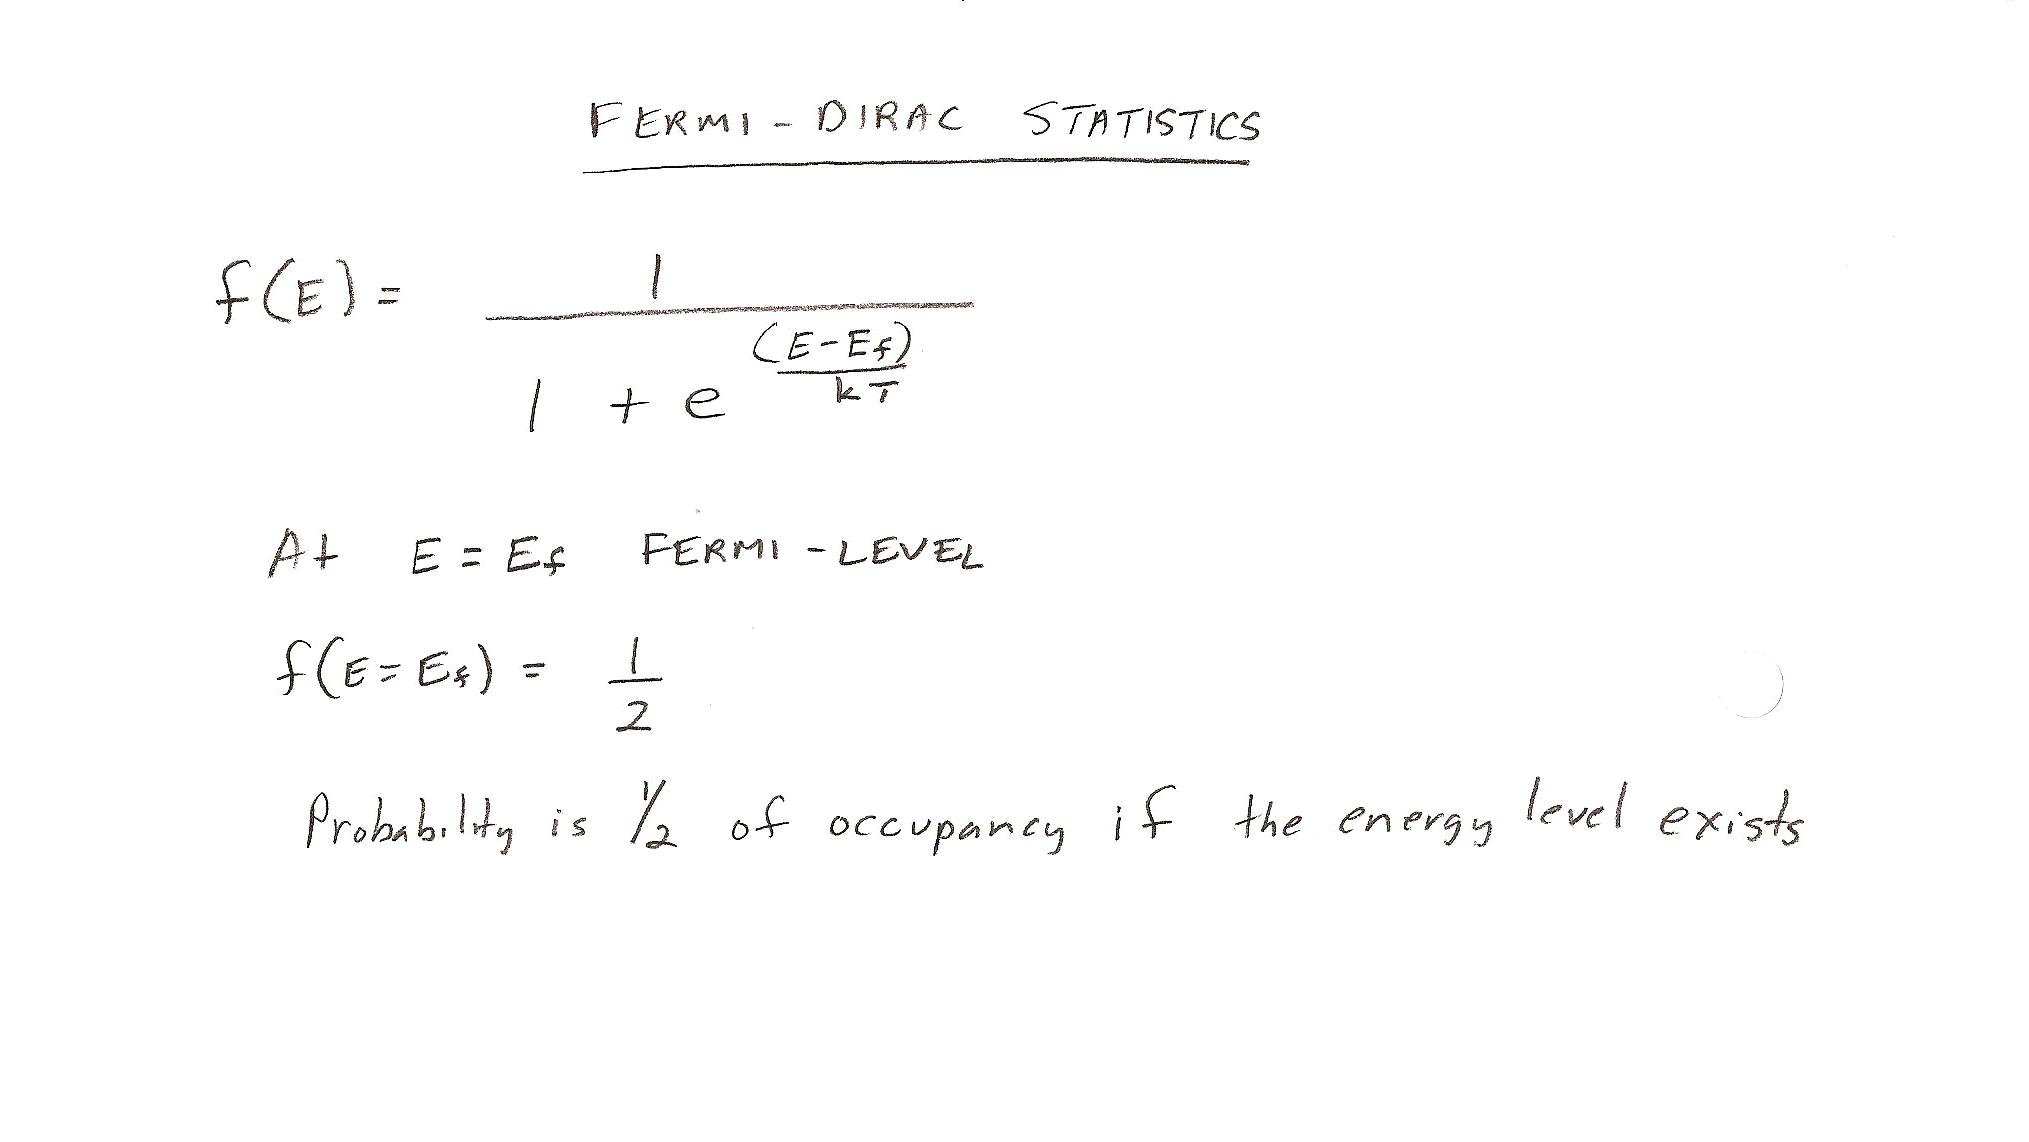 FERMI - DIRAC STATISTICS
f(E) = 1 / (1 + e^((E-Ef)/kT))
At E = Ef FERMI - LEVEL
f(E = Ef) = 1/2
Probability is 1/2 of occupancy if the energy level exists